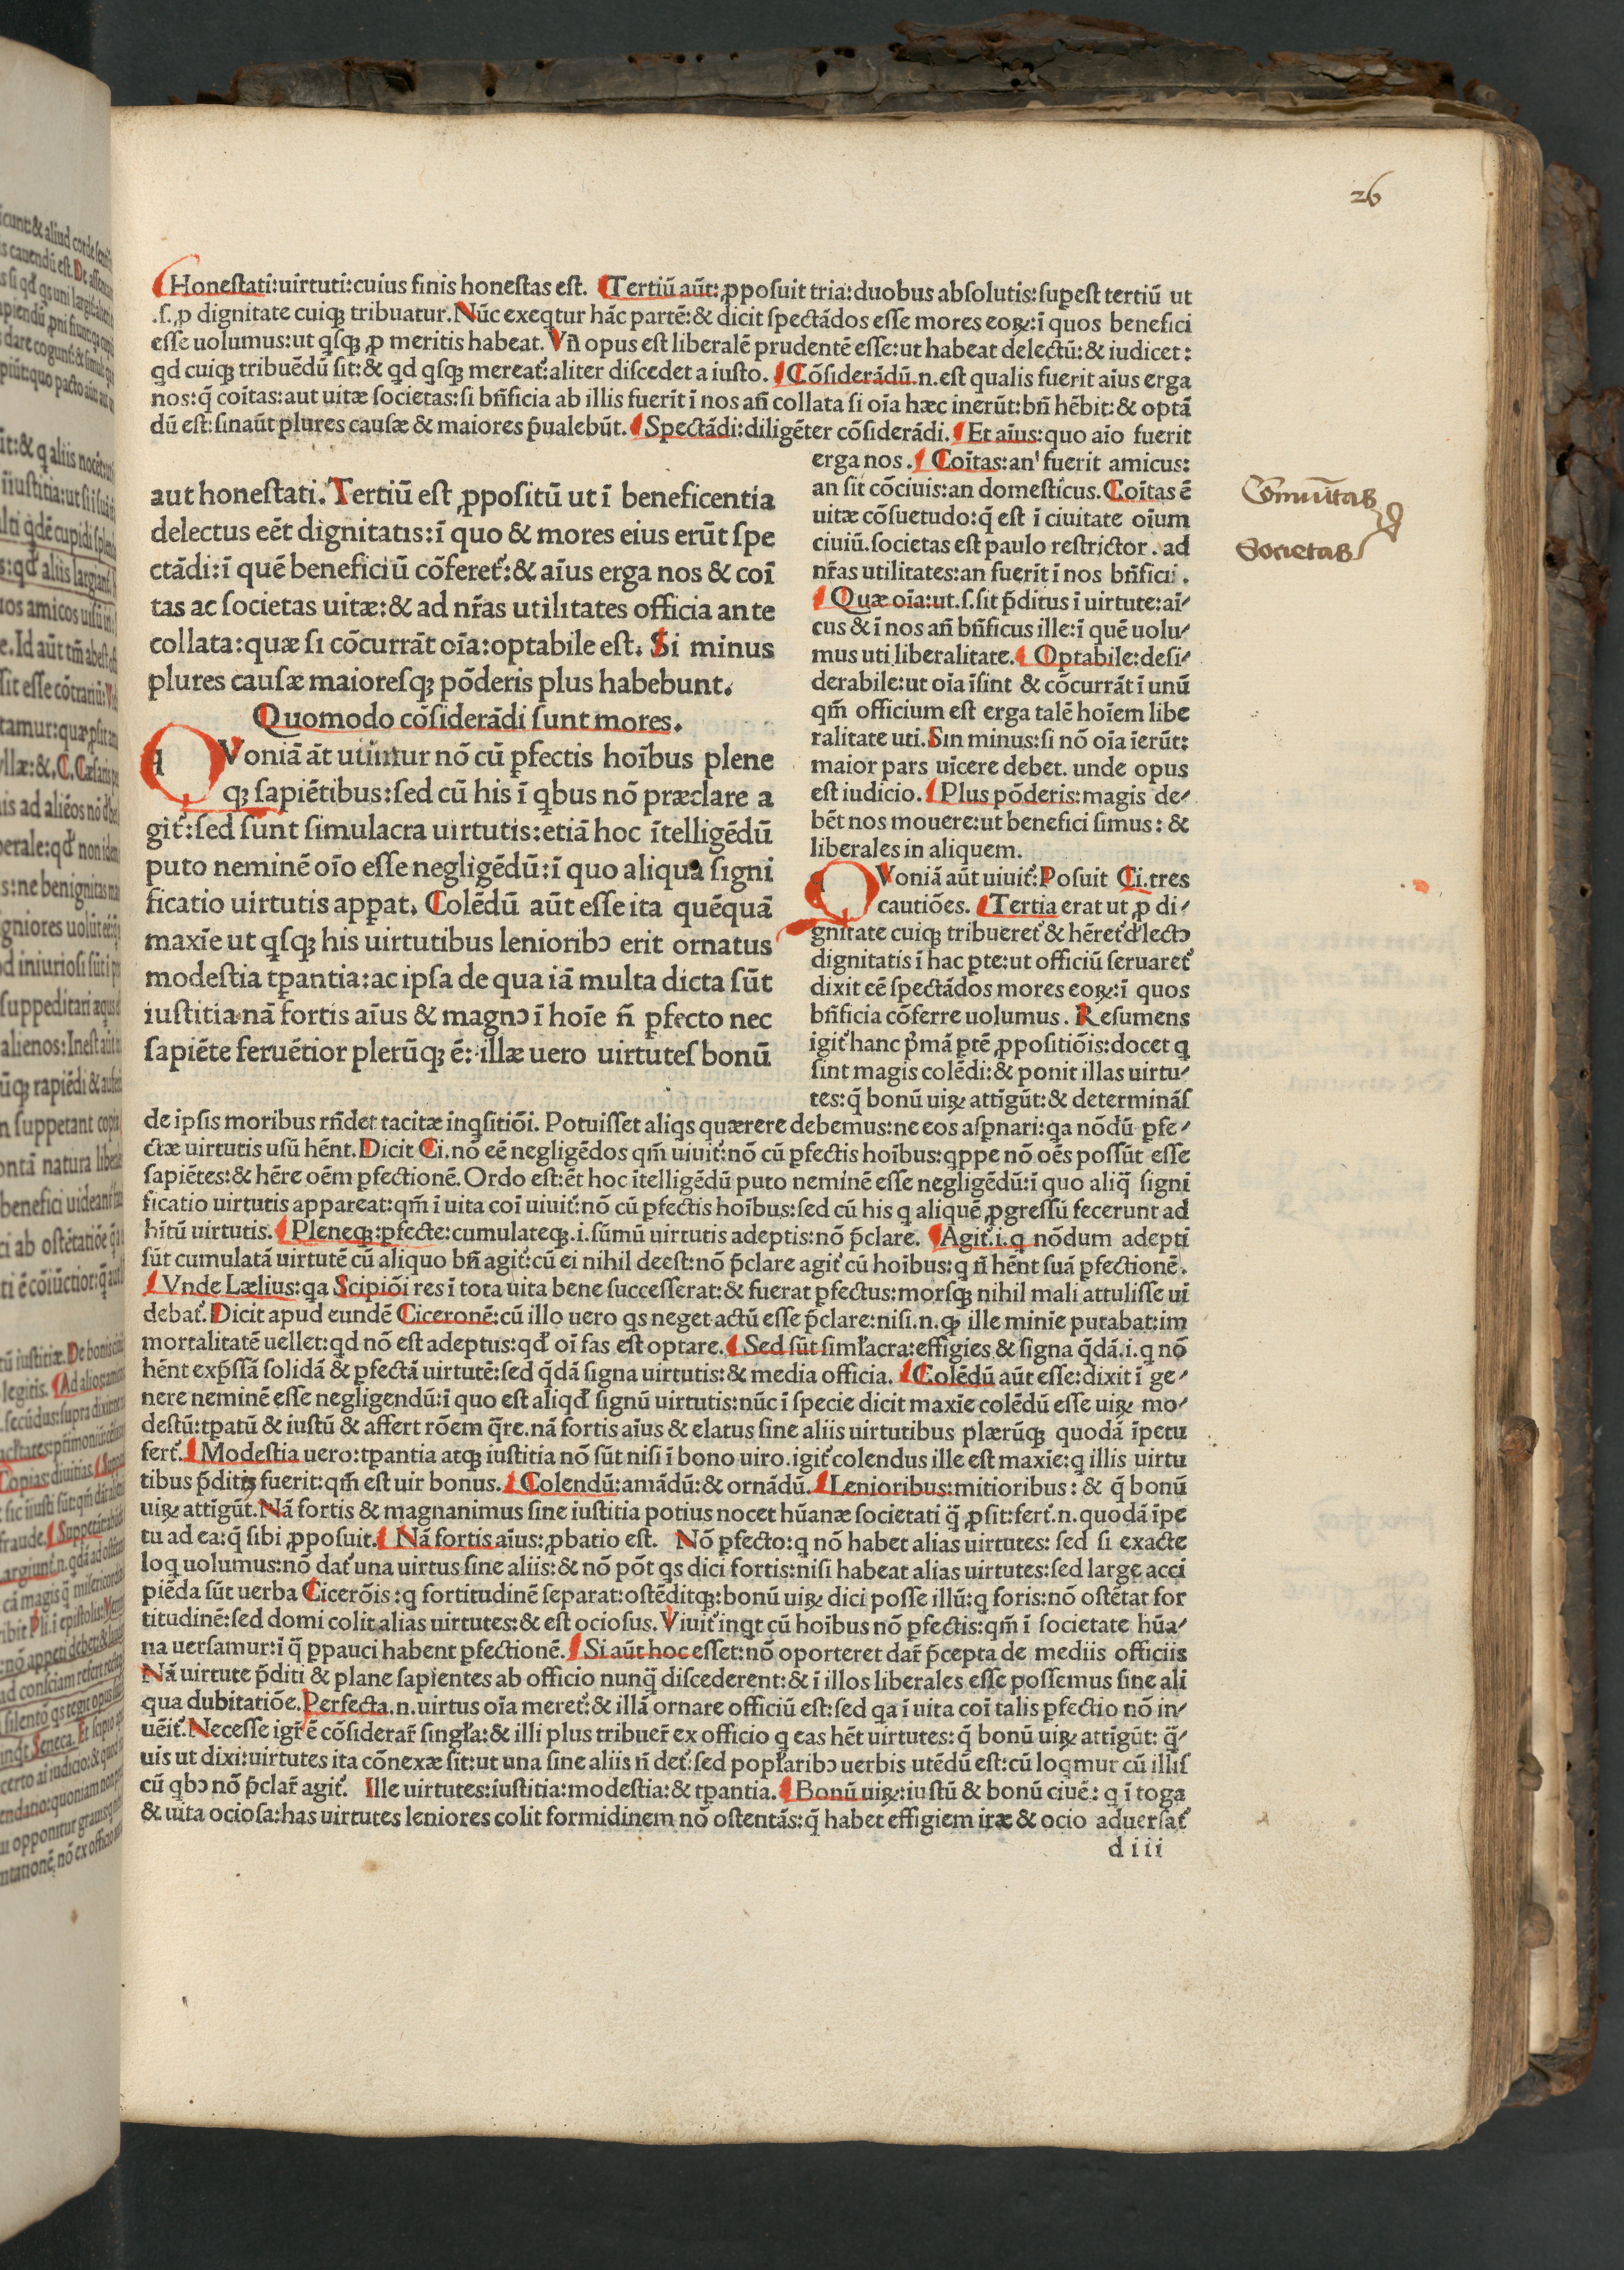 26
Honeſtati:uirtuti:cuius finis honeſtas eſt. Tertiū aūt: ꝓpoſuit tria:duobus abſolutis:ſupeſt tertiū ut
.ſ.ꝓ dignitate cuiqꝫ tribuatur.Nūc exeqtur hāc partē:& dicit ſpectādos eſſe mores eoꝝ:ī quos benefici
eſſe uolumus:ut qſqꝫ ꝓ meritis habeat.Vn̄ opus eſt liberalē prudentē eſſe:ut habeat delectū:& iudicet:
qd cuiqꝫ tribuēdū ſit:& qd qſqꝫ mereat᷑:aliter diſcedet a iuſto. Cōſiderādū.n.eſt qualis fuerit aīus erga
nos:q̄ coītas:aut uitæ ſocietas:ſi bn̄ficia ab illis fuerīt ī nos an̄ collata ſi oīa hæc inerūt:bn̄ hēbit:& optā
dū eſt:ſinaūt plures cauſæ & maiores p̄ualebūt. Spectādi:diligēter cōſiderādi. Et aīus:quo aīo fuerit
aut honeſtati.Tertiū eſt ꝓpoſitū ut ī beneficentia
delectus eēt dignitatis:ī quo & mores eius erūt ſpe
ctādi:ī quē beneficiū cōferet᷑:& aīus erga nos & coī
tas ac ſocietas uitæ:& ad nr̄as utilitates officia ante
collata:quæ ſi cōcurrāt oīa:optabile eſt. Si minus
plures cauſæ maioreſqꝫ pōderis plus habebunt.
Quomodo cōſiderādi ſunt mores.
q Voniā āt uiuitur nō cū ꝑfectis hoībus plene
qꝫ ſapiētibus:ſed cū his ī qbus nō præclare a
git᷑:ſed ſunt ſimulacra uirtutis:etiā hoc ītelligēdū
puto neminē oīo eſſe negligēdū:ī quo aliqua ſigni
ficatio uirtutis apꝑat. Colēdū aūt eſſe ita quēquā
maxīe ut qſqꝫ his uirtutibus lenioribꝰ erit ornatus
modeſtia tꝑantia:ac ipſa de qua iā multa dicta ſūt
iuſtitia.nā fortis aīus & magnꝰ ī hoīe n̄ ꝑfecto nec
ſapiēte feruētior plerūqꝫ ē: illæ uero uirtuteſ bonū
erga nos. Coītas:an' fuerit amicus:
an ſit cōciuis:an domeſticus.Coītas ē
uitæ cōſuetudo:q̄ eſt ī ciuitate oīum
ciuiū.ſocietas eſt paulo reſtrictor. ad
nr̄as utilitates:an fuerīt ī nos bn̄ficii.
Quæ oīa:ut.ſ.ſit p̄ditus ī uirtute:aī⸗
cus & ī nos an̄ bn̄ficus ille:ī quē uolu⸗
mus uti liberalitate. Optabile:deſi⸗
derabile:ut oīa īſint & cōcurrāt ī unū
qm̄ officium eſt erga talē hoīem libe
ralitate uti.Sin minus:ſi nō oīa īerūt:
maior pars uīcere debet. unde opus
eſt iudicio. Plus pōderis:magis de⸗
bēt nos mouere:ut benefici ſimus: &
liberales in aliquem.
q Voniā aūt uiuit᷑:Poſuit Ci.tres
cautiōes. Tertia erat ut ꝓ di⸗
gnitate cuiqꝫ tribueret᷑ & hēret᷑ d'lectꝰ
dignitatis ī hac ꝑte:ut officiū ſeruaret᷑
dixit eē ſpectādos mores eoꝝ:ī quos
bn̄ficia cōferre uolumus. Reſumens
igit᷑ hanc p'mā ꝑtē ꝓpoſitiōis:docet q
ſint magis colēdi:& ponit illas uirtu⸗
tes:q̄ bonū uiꝝ attīgūt:& determināſ
Cōmunitas
Societas
de ipſis moribus rn̄det tacitæ inqſitiōi. Potuiſſet aliqs quærere debemus:ne eos aſꝑnari:qa nōdū ꝑfe⸗
ctæ uirtutis uſū hēnt.Dicit Ci.nō eē negligēdos qm̄ uiuit᷑:nō cū ꝑfectis hoībus:qppe nō oēs poſſūt eſſe
ſapiētes:& hēre oēm ꝑfectionē. Ordo eſt:ēt hoc ītelligēdū puto neminē eſſe negligēdū:ī quo aliq̄ ſigni
ficatio uirtutis appareat:qm̄ ī uita coī uiuit᷑:nō cū ꝑfectis hoībus:ſed cū his q aliquē ꝓgreſſū fecerunt ad
hītū uirtutis. Pleneqꝫ:ꝑfecte:cumulateqꝫ.i.ſūmū uirtutis adeptis:nō p̄clare. Agit᷑.i.q nōdum adepti
ſūt cumulatā uirtutē cū aliquo bn̄ agit᷑:cū ei nihil deeſt:nō p̄clare agit᷑ cū hoībus:q n̄ hēnt ſuā ꝑfectionē.
Vnde Lælius:qa Scipiōi res ī tota uita bene ſucceſſerat:& fuerat ꝑfectus:morſqꝫ nihil mali attuliſſe ui
debat᷑.Dicit apud eundē Ciceronē:cū illo uero qs neget actū eſſe p̄clare:niſi.n.qꝫ ille minīe putabat:im
mortalitatē uellet:qd nō eſt adeptus:qd' oī fas eſt optare. Sed ſūt ſimłacra:effigies & ſigna q̄dā.i.q nō
hēnt exp̄ſſā ſolidā & ꝑfectā uirtutē:ſed q̄dā ſigna uirtutis:& media officia. Colēdū aūt eſſe:dixit ī ge⸗
nere neminē eſſe negligendū:ī quo eſt aliqd' ſignū uirtutis:nūc ī ſpecie dicit maxīe colēdū eſſe uiꝝ mo⸗
deſtū:tꝑatū & iuſtū & affert rōem q̄re.nā fortis aīus & elatus ſine aliis uirtutibus plærūqꝫ quodā īpetu
fert᷑. Modeſtia uero:tꝑantia atqꝫ iuſtitia nō ſūt niſi ī bono uiro.igit᷑ colendus ille eſt maxīe:q illis uirtu
tibus p̄ditis fuerit:qm̄ eſt uir bonus. Colendū:amādū:& ornādū. Lenioribus:mitioribus: & q̄ bonū
uiꝝ attīgūt.Nā fortis & magnanimus ſine iuſtitia potius nocet hūanæ ſocietati q̄ ꝓſit:fert᷑.n.quodā īpe
tu ad ea:q̄ ſibi ꝓpoſuit. Nā fortis aīus:ꝓbatio eſt. Nō ꝑfecto:q nō habet alias uirtutes: ſed ſi exacte
loq uolumus:nō dat᷑ una uirtus ſine aliis:& nō pōt qs dici fortis:niſi habeat alias uirtutes:ſed large acci
piēda ſūt uerba Cicerōis:q fortitudinē ſeparat:oſtēditqꝫ:bonū uiꝝ dici poſſe illū:q foris:nō oſtētat for
titudinē:ſed domi colit alias uirtutes:& eſt ocioſus.Viuit᷑ inqt cū hoībus nō ꝑfectis:qm̄ ī ſocietate hūa⸗
na uerſamur:ī q̄ ꝑpauci habent ꝑfectionē. Si aūt hoc eſſet:nō oporteret dar̄ p̄cepta de mediis officiis
Nā uirtute p̄diti & plane ſapientes ab officio nunq̄ diſcederent:& ī illos liberales eſſe poſſemus ſine ali
qua dubitatiōe.Perfecta.n.uirtus oīa meret᷑:& illā ornare officiū eſt:ſed qa ī uita coī talis ꝑfectio nō in⸗
uēit᷑.Neceſſe igr̄ ē cōſiderar̄ ſingła:& illi plus tribuer̄ ex officio q eas hēt uirtutes:q̄ bonū uiꝝ attīgūt: q̄⸗
uis ut dixi:uirtutes ita cōnexæ ſīt:ut una ſine aliis n̄ det᷑:ſed popłaribꝰ uerbis utēdū eſt:cū loqmur cū illiſ
cū qbꝰ nō p̄clar̄ agit᷑. Ille uirtutes:iuſtitia:modeſtia:& tꝑantia. Bonū uiꝝ:iuſtū & bonū ciuē: q ī toga
& uita ocioſa:has uirtutes leniores colit formidinem nō oſtentās:q̄ habet effigiem iræ & ocio aduerſat᷑
d iii